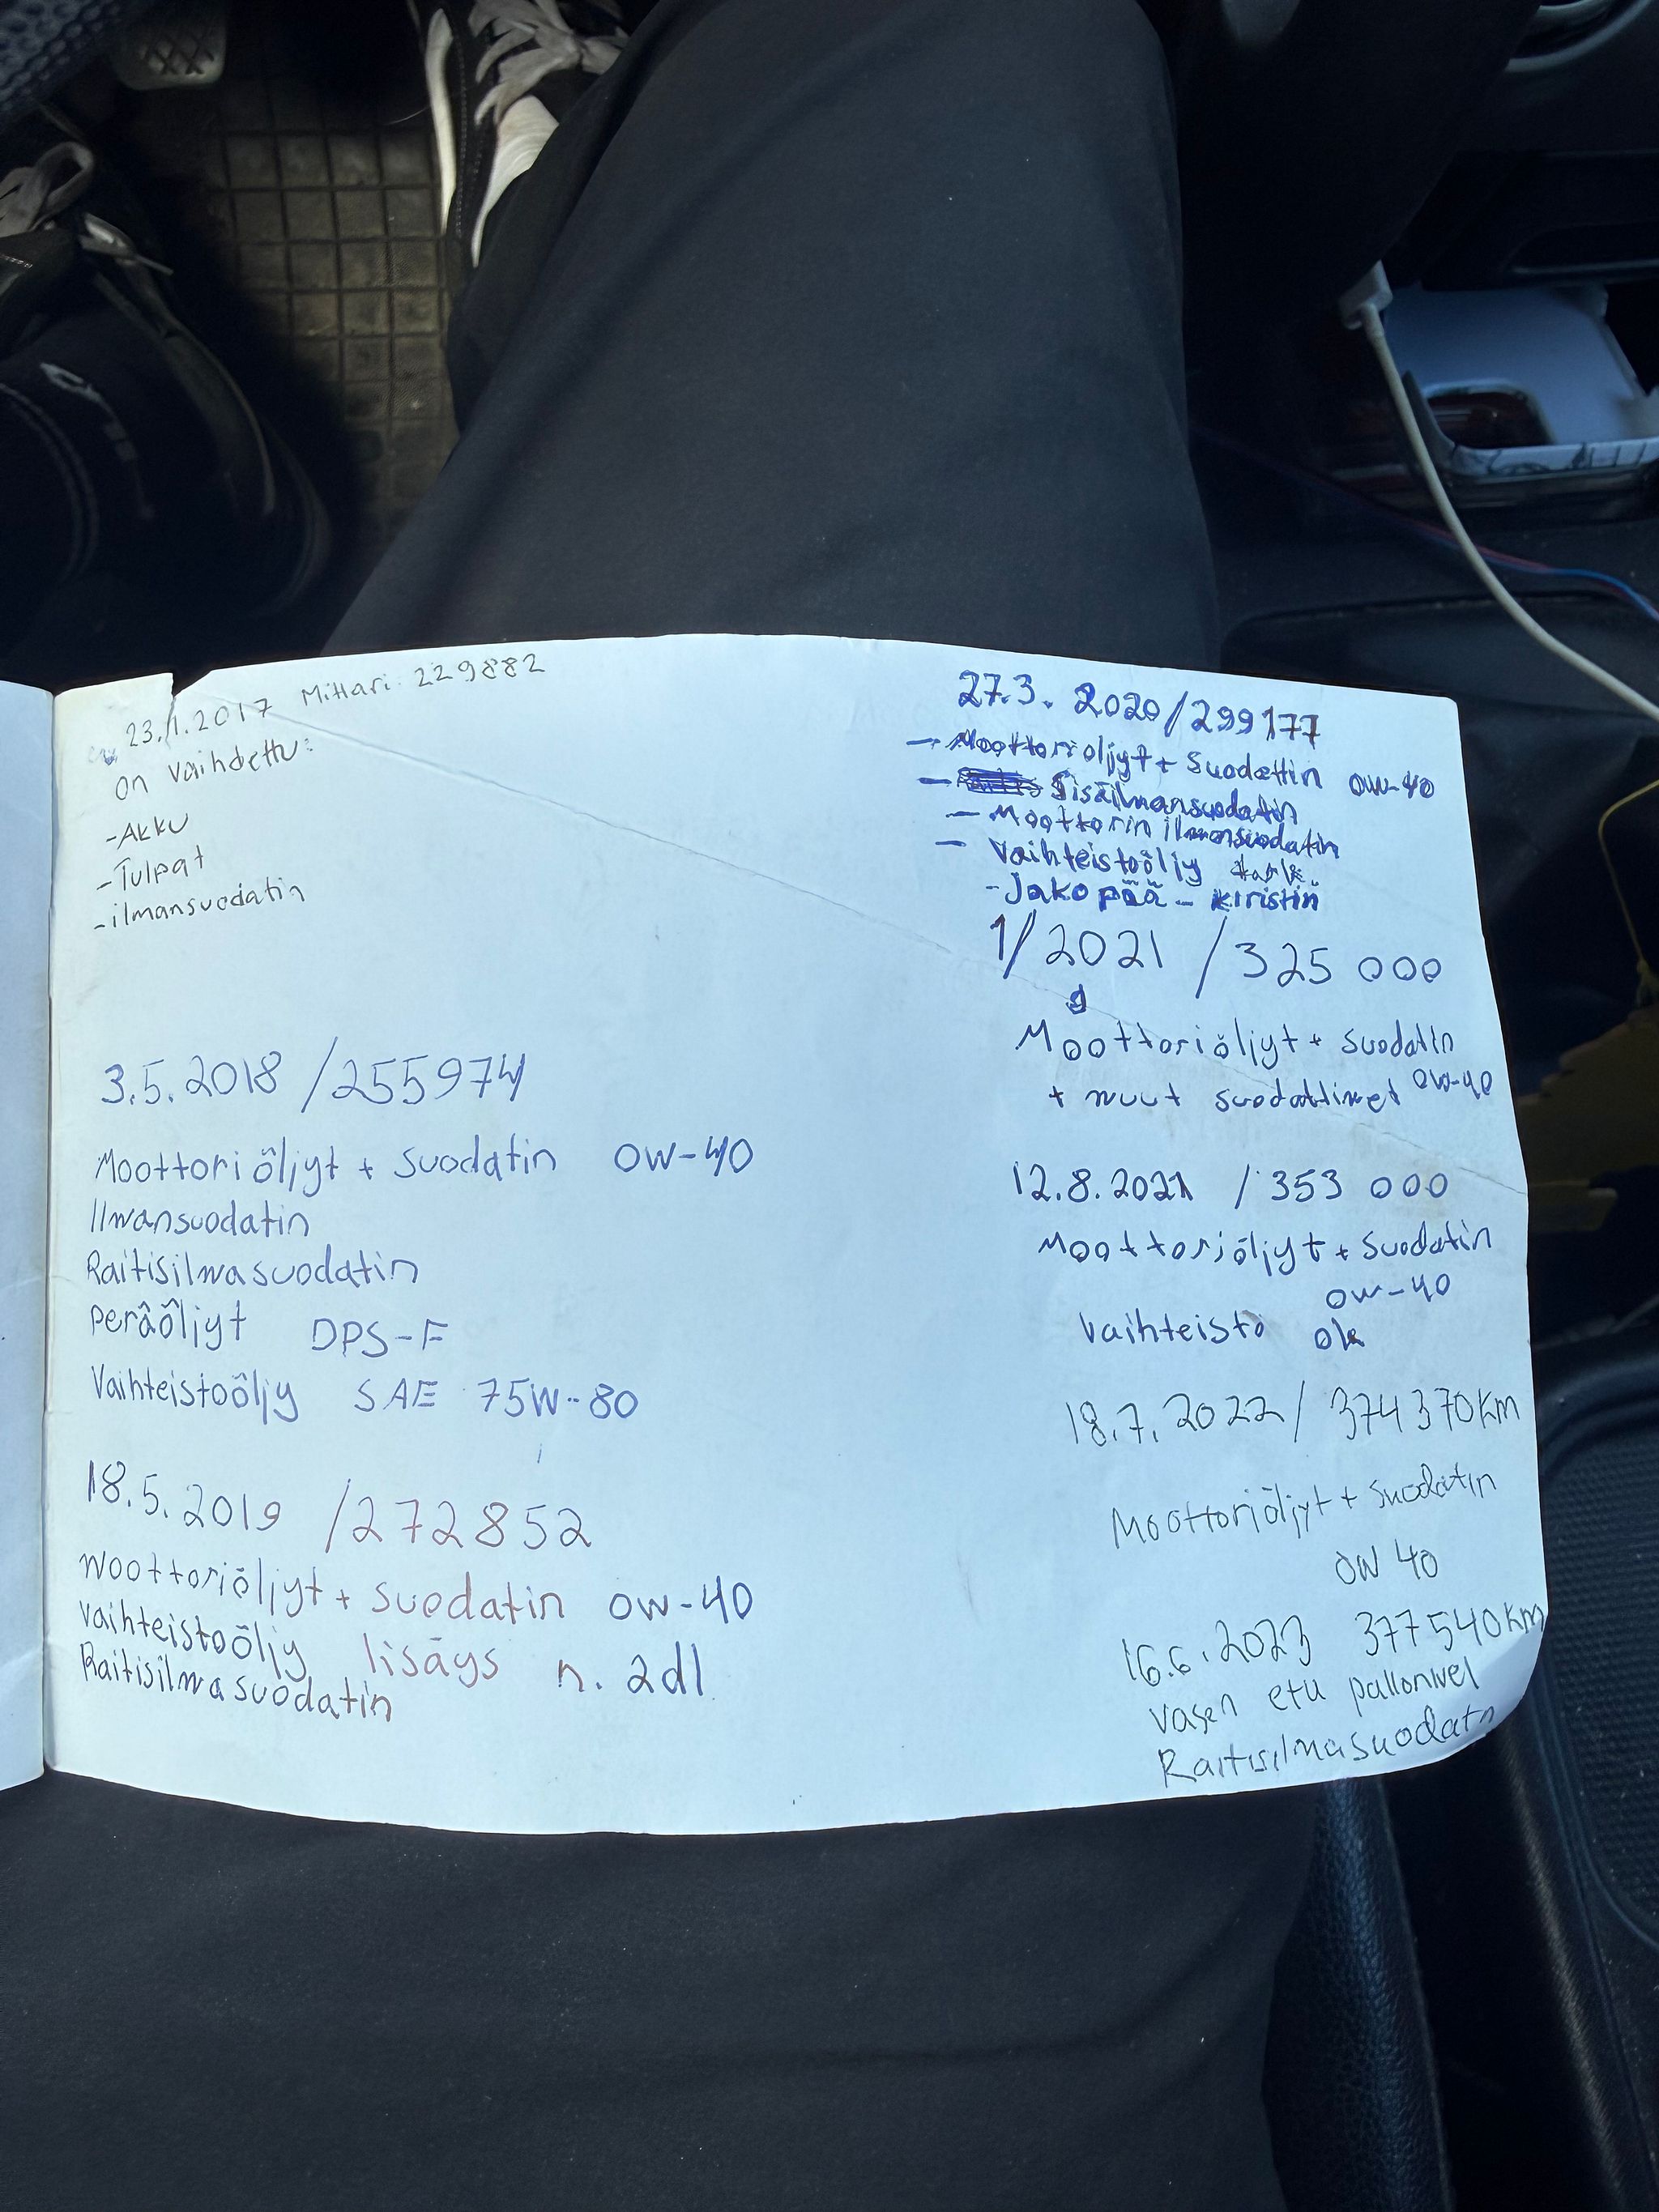 23.1.2017 Mittari: 229882
on vaihdettu:
-Akku
-Tulpat
-ilmansuodatin
3.5.2018 /255974
Moottoriöljyt + suodatin 0W-40
Ilmansuodatin
Raitisilmasuodatin
Peräöljyt DPS-F
Vaihteistoöljy SAE 75W-80
18.5.2019 /272852
moottoriöljyt + suodatin 0W-40
vaihteistoöljy lisäys n. 2dl
Raitisilmasuodatin
27.3. 2020/299177
- Moottoriöljyt + Suodattin 0W-40
- Sisäilmansuodatin
- Moottorin ilmansuodatin
- Vaihteistoöljy tark.
- Jakopää - kiristin
1/2021 /325 000
Moottoriöljyt + suodatin
+ muut suodattimet 0W-40
12.8.2021 / 353 000
Moottoriöljyt + Suodatin
0W-40
Vaihteisto ok
18.7.2022/ 374370KM
Moottoriöljyt + suodatin
0W 40
16.6.2023 377540KM
vasen etu pallonivel
Raitisilmasuodatn